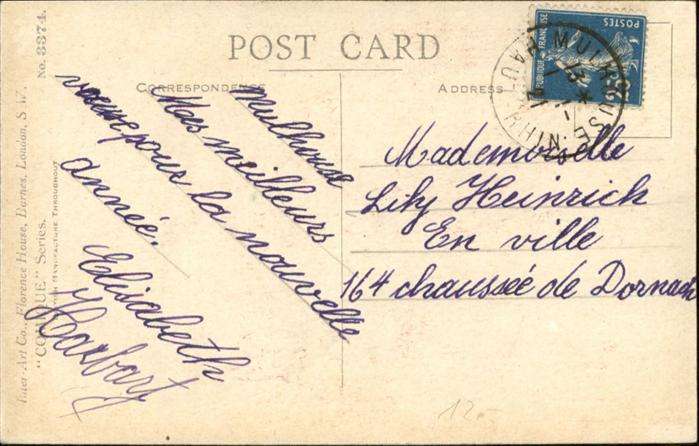 POST CARD
CORRESPONDENCE
ADDRESS
Mulhouse
Mes meilleurs
vœux pour la nouvelle
année.
Elisabeth
Mademoiselle
Lily Heinrich
En ville
164 chaussée de Dornach
Inter-Art Co., Florence House, Barnes, London, S.W.
SERIES.
MANUFACTURE THROUGHOUT
No. 3374.
POSTES
12.-